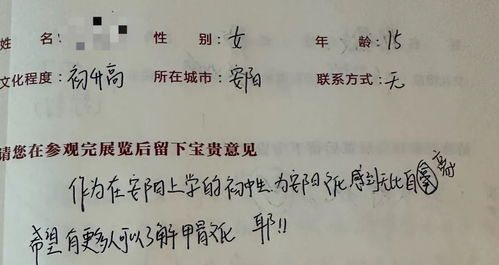 姓 名: 性 别:女 年 龄:15
文化程度:初升高 所在城市:安阳 联系方式:无
请您在参观完展览后留下宝贵意见
作为在安阳上学的初中生为安阳文化感到无比自豪
希望有更多人可以了解甲骨文化 耶!!